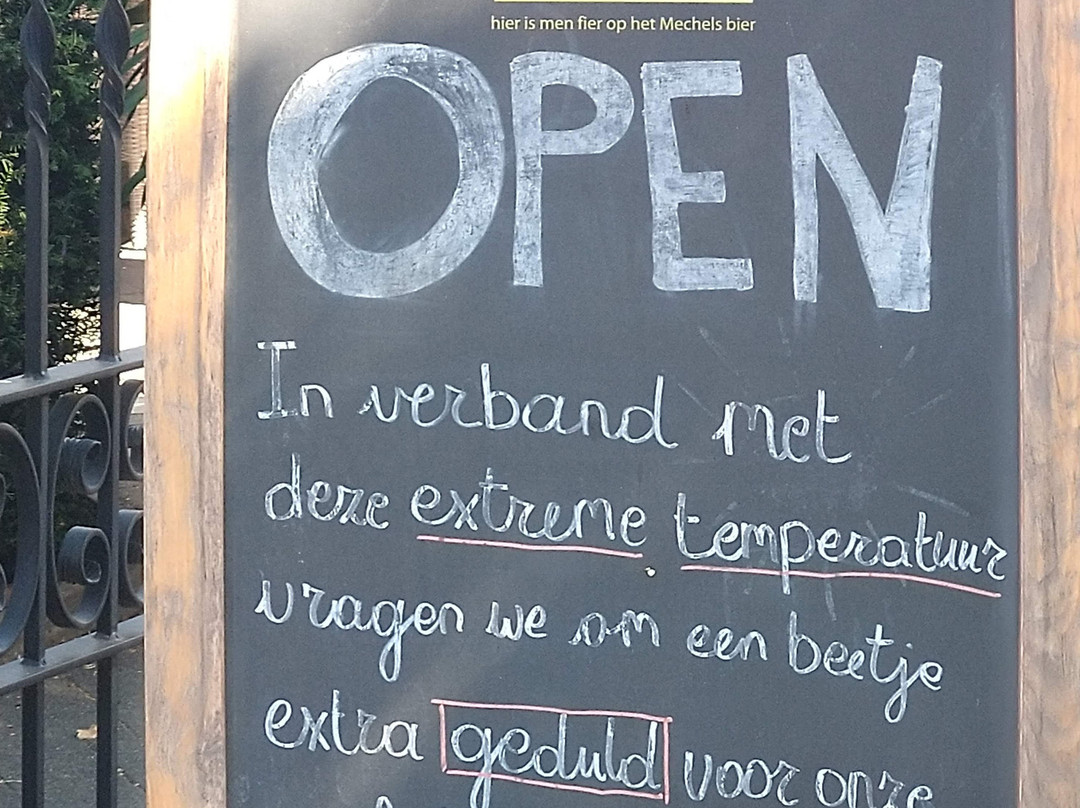 hier is men fier op het Mechels bier
OPEN
In verband met
deze extreme temperatuur
vragen we om een beetje
extra geduld voor onze